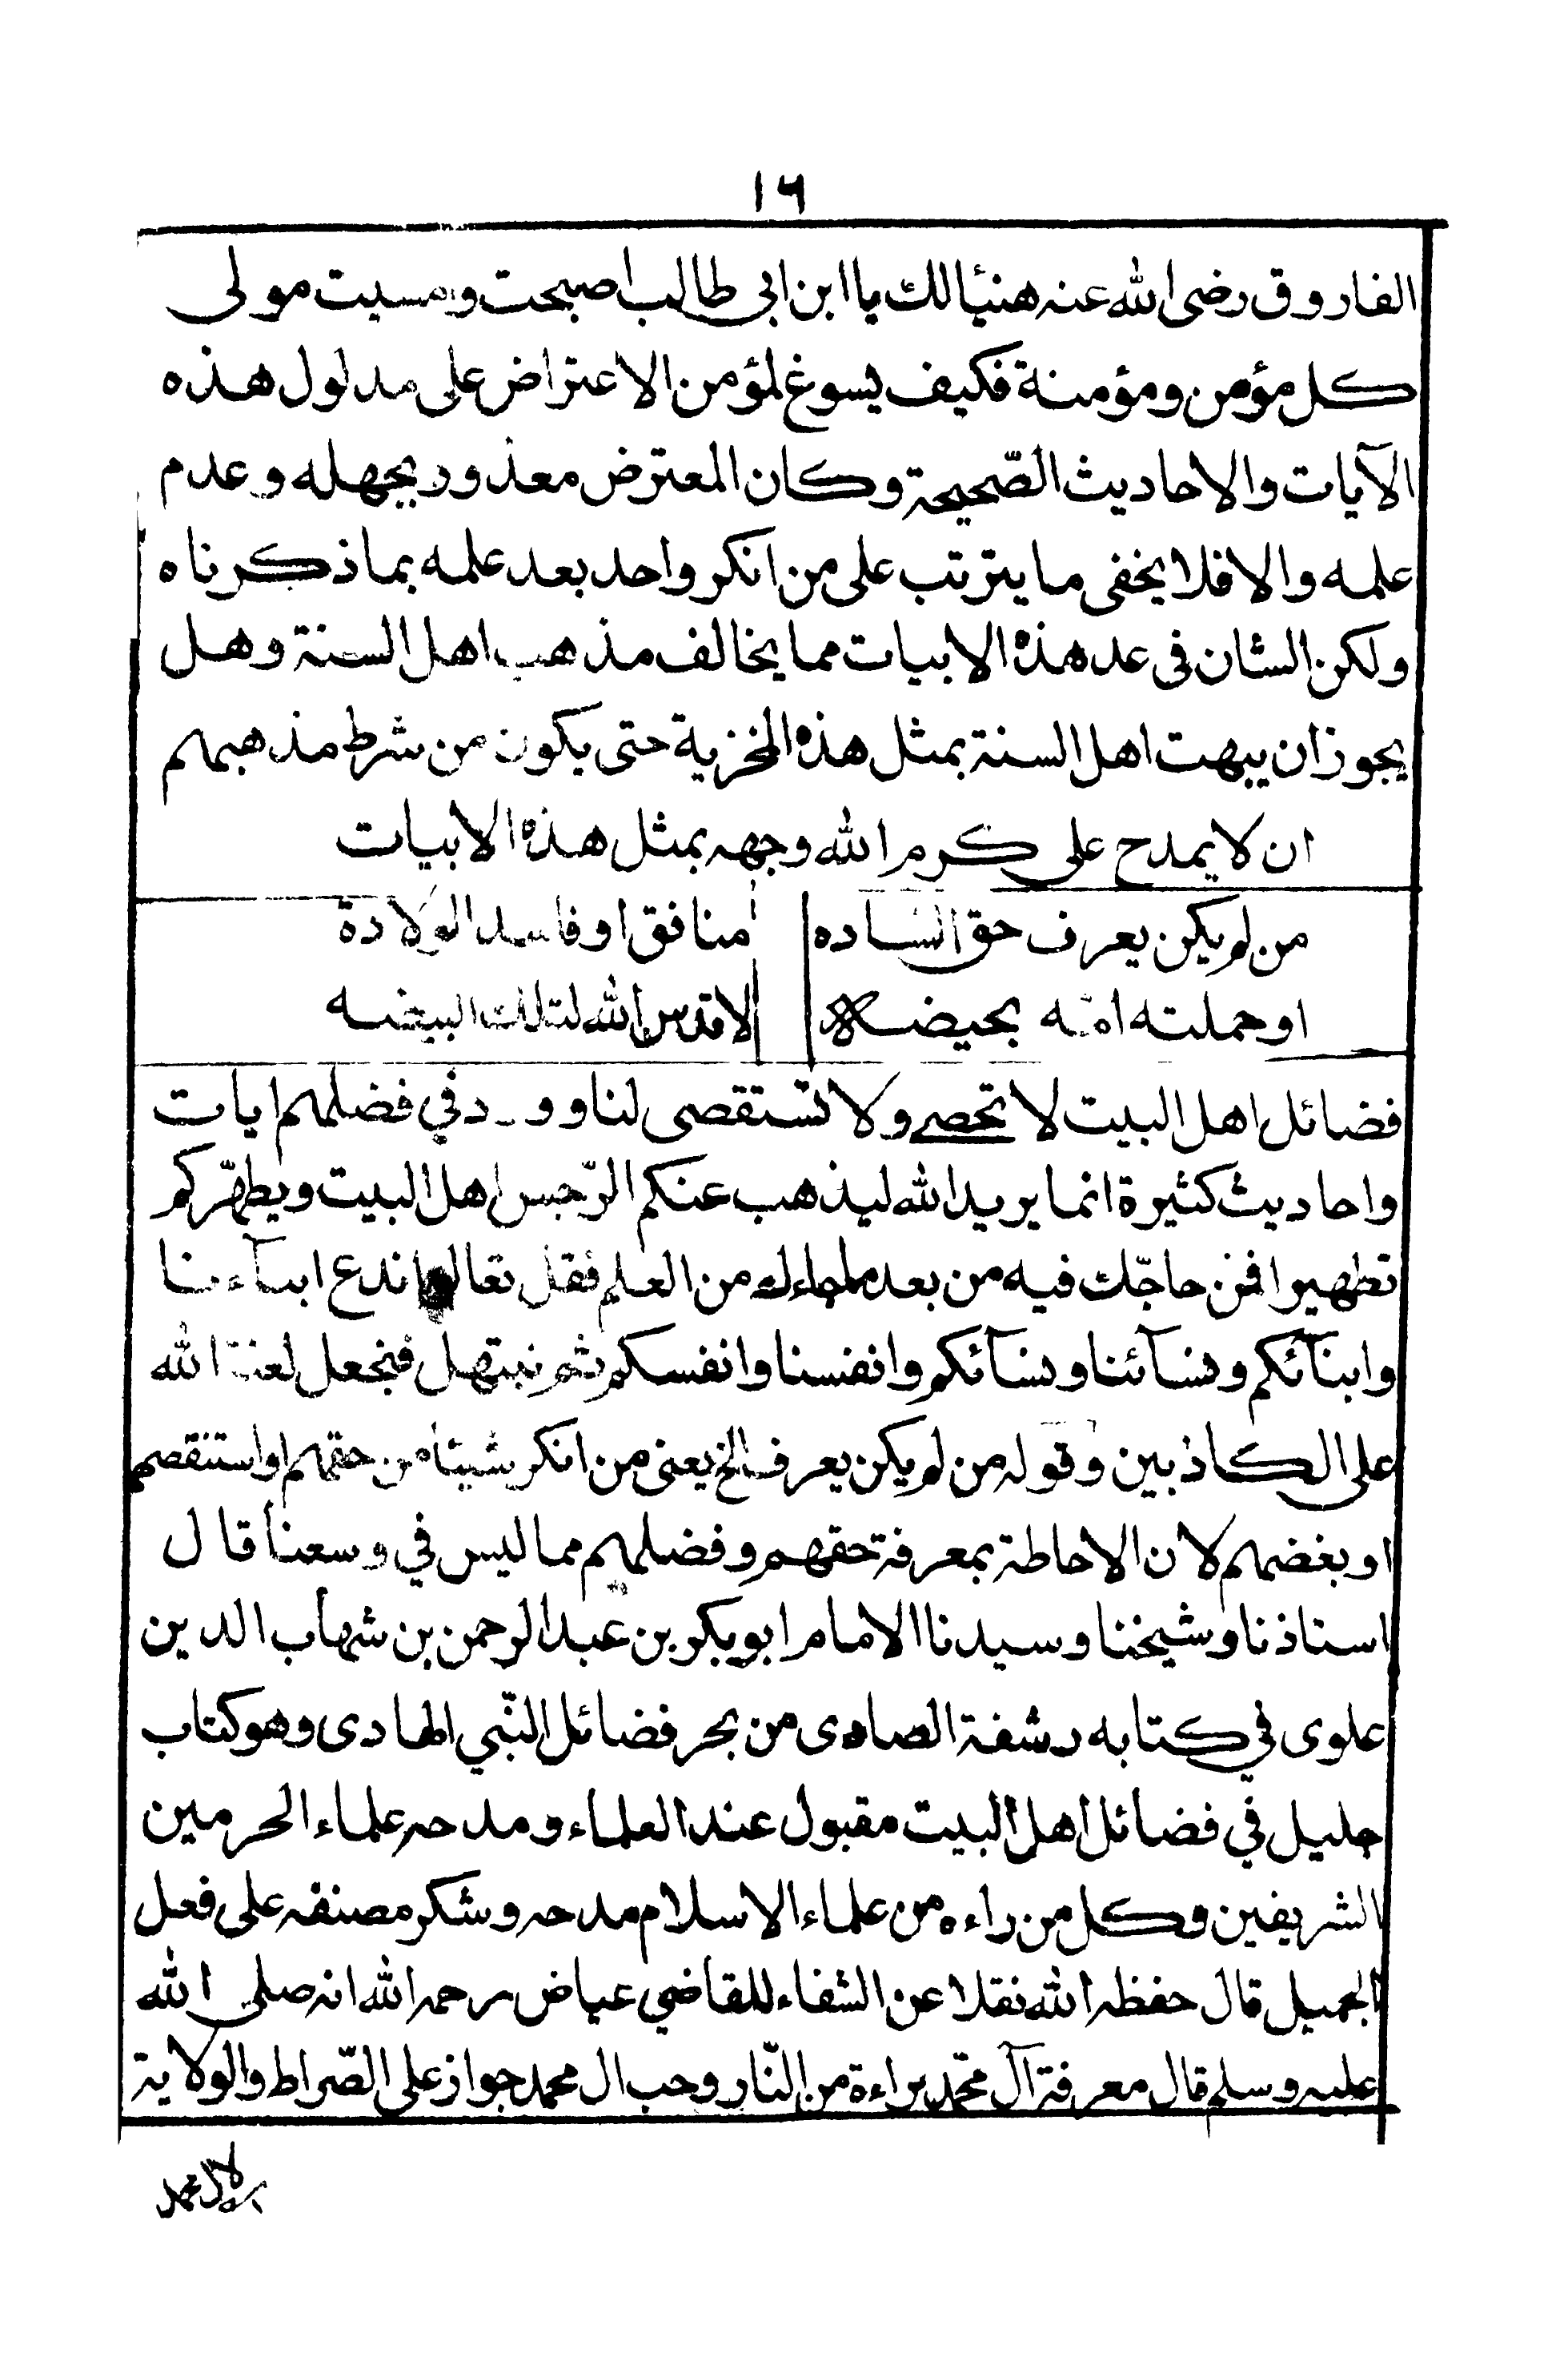 ١٦
الفاروق رضى الله عنه هنيئالك يا ابن ابى طالب اصبحت ومسيت مولى
كل مؤمن ومؤمنة فكيف يسوغ لمؤمن الاعتراض على مدلول هذه
الآيات والاحاديث الصّحيحة وكان المعترض معذور بجهله وعدم
علمه والا فلا يخفى ما يترتب على من انكر واحد بعد علمه بما ذكرناه
ولكن الشان فى عد هذه الابيات مما يخالف مذهب اهل السنة وهل
يجوز ان يبهت اهل السنة بمثل هذه الخزية حتى يكون من شرط مذهبهم
ان لا يمدح على كرم الله وجهه بمثل هذه الابيات
من لم يكن يعرف حق الساده منافق او فاسد الولادة
او حملته امه بحيضه لا قدس الله لتلك البيضه
فضائل اهل البيت لا تحصى ولا تستقصى لنا وود في فضلهم ايات
واحاديث كثيرة انما يريد الله ليذهب عنكم الرّجس اهل البيت ويطهّركم
تطهيرا فمن حاجّك فيه من بعد ماجاءك من العلم فقل تعالوا ندع ابنآءنا
وابنآئكم ونسآئنا ونسآئكم وانفسنا وانفسكم ثم نبتهل فنجعل لعنة الله
على الكاذبين وقوله من لم يكن يعرف الخ يعنى من انكر شيئا من حقهم او استنقصهم
او بغضهم لان الاحاطة بمعرفة حقهم وفضلهم مما ليس في وسعنا قال
استاذنا وشيخنا وسيدنا الامام ابو بكر بن عبد الرحمن بن شهاب الدين
علوى في كتابه رشفة الصادى من بحر فضائل النّبي الهادى وهو كتاب
جليل في فضائل اهل البيت مقبول عند العلماء ومدحه علماء الحرمين
الشريفين وكل من راءه من علماء الاسلام مدحه وشكر مصنفه على فعل
الجميل قال حفظه الله نقلا عن الشفاء للقاضي عياض رحمه الله انه صلى الله
عليه وسلم قال معرفة آل محّمد براءة من النّار وحب ال محمد جواز على الصّراط والولاية
لال محمد